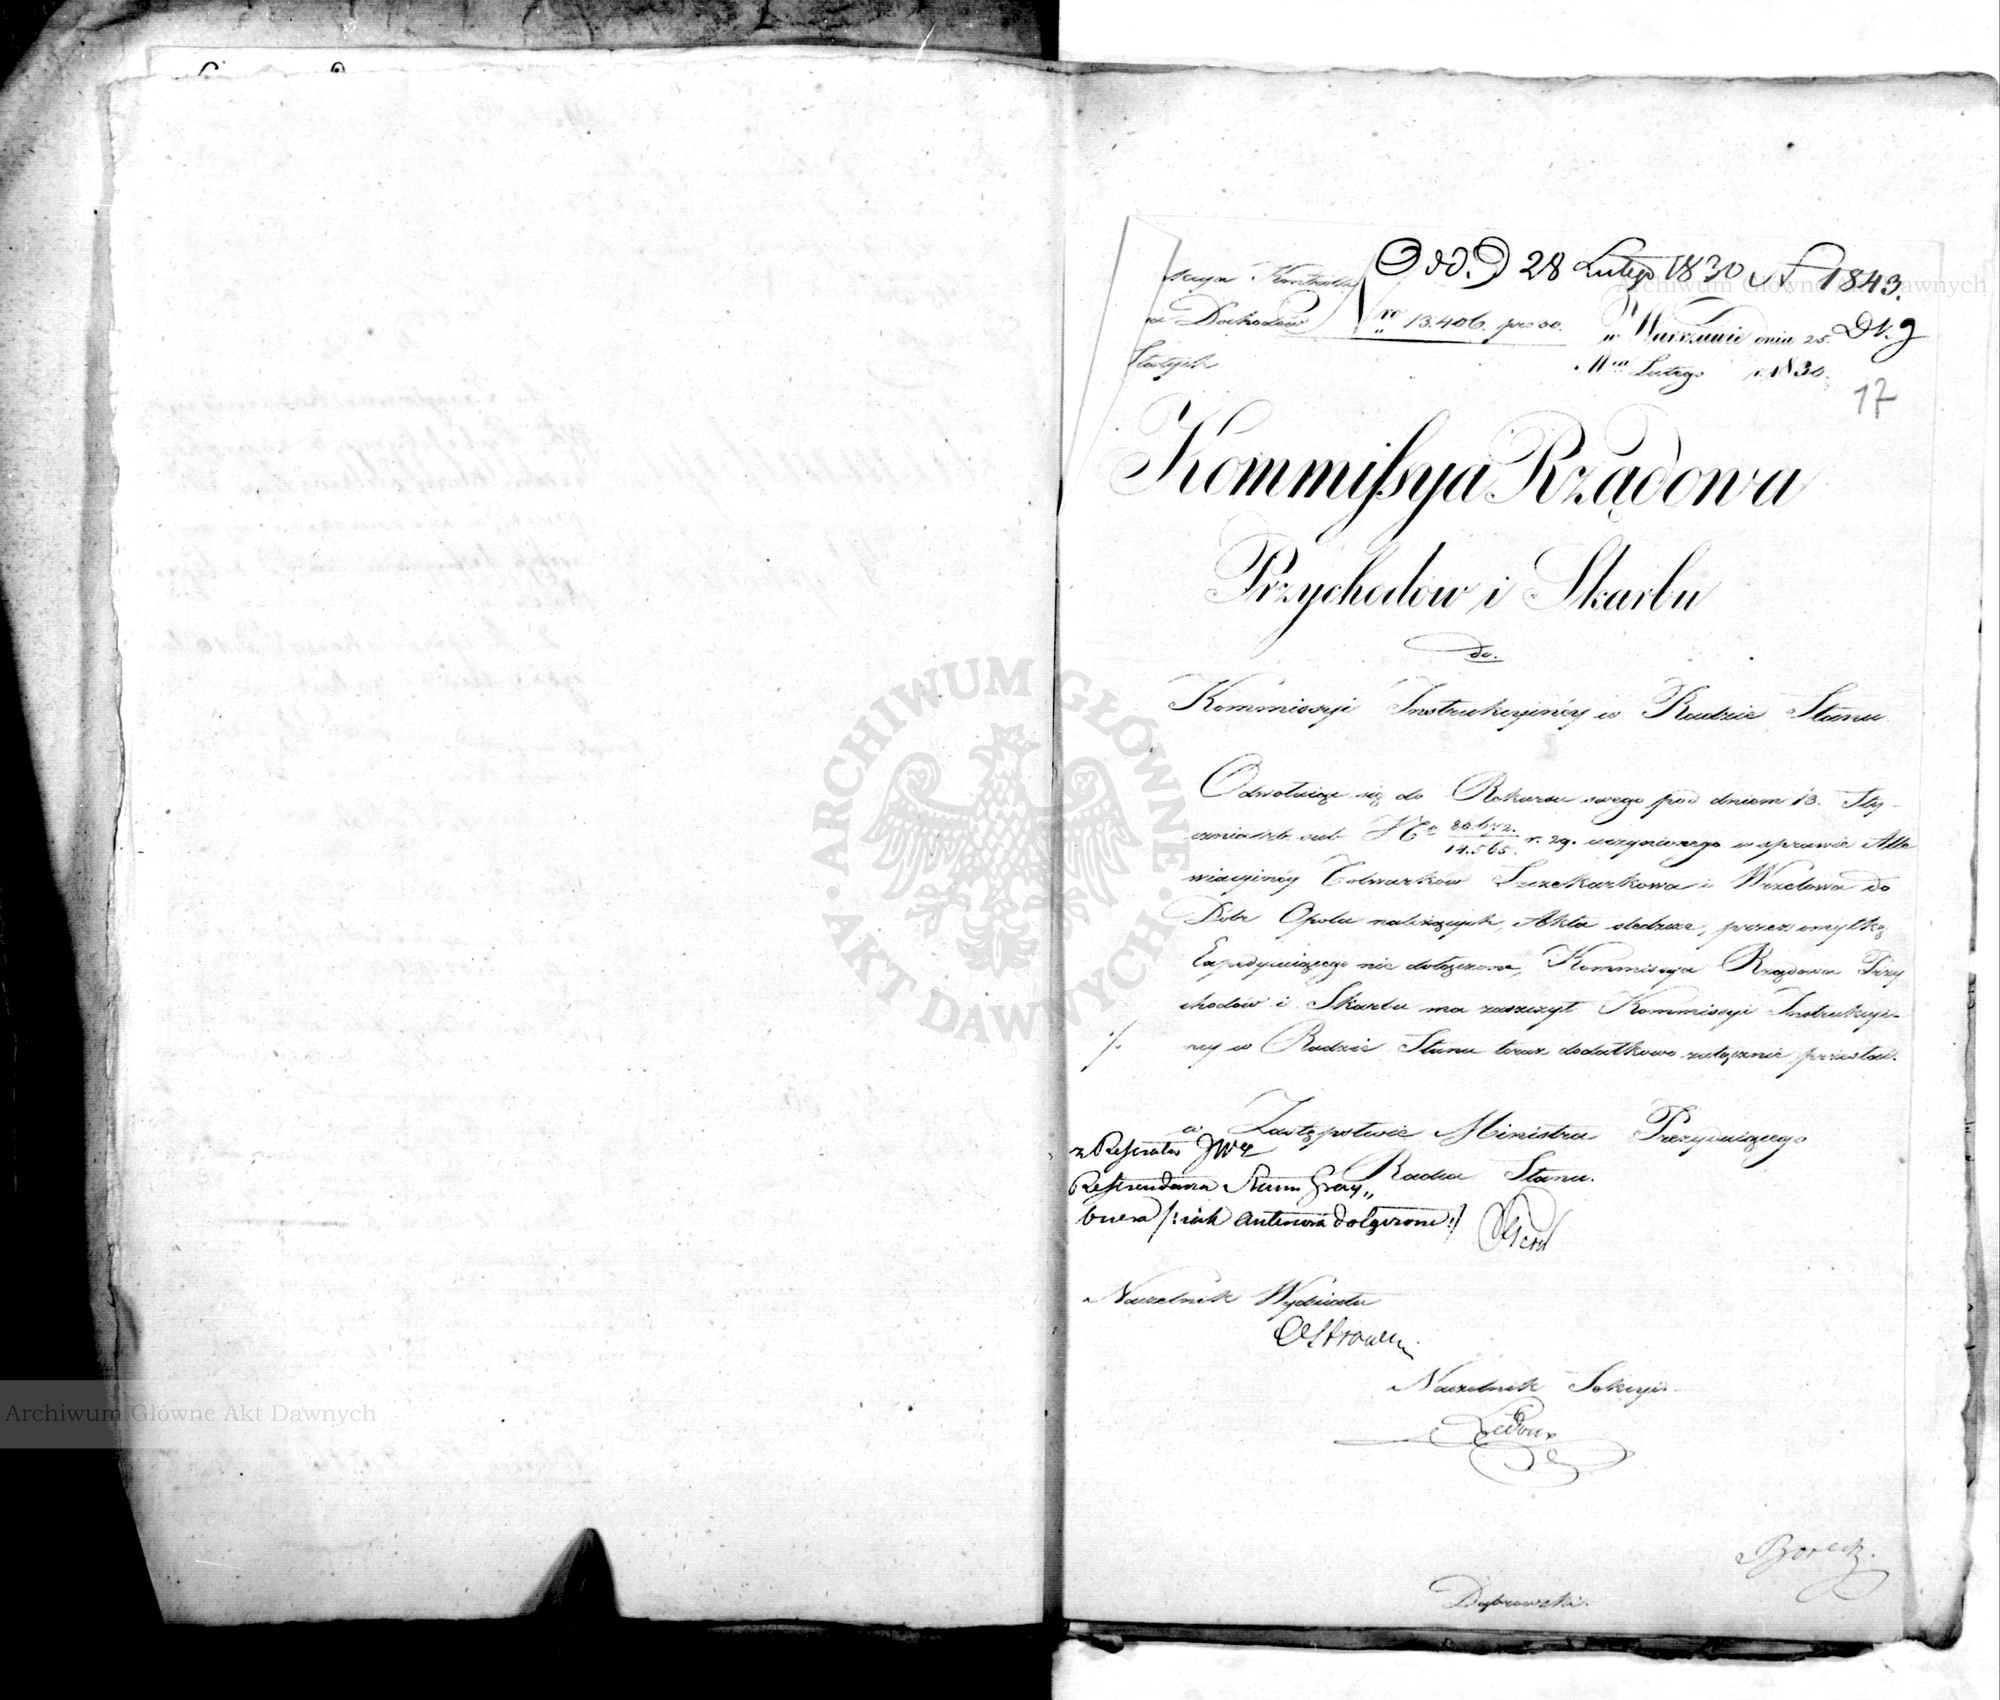 Odd. D 28 Lutego 1830 N 1843.
Dv. 9
Kontrolla
Dochodów
Stałych
Nro 13.406. pro 30.
w Warszawie dnia 25.
Mca Lutego r. 1830.
17
Kommissya Rządowa
Przychodów i Skarbu
do.
Kommissyi Instrukcyinéy w Radzie Stanu
Odwołuiąc się do Rekursu swego pod dniem 13. Sty-
cznia rb. sub No 80.672./14.565. r. 29. uczynionego w sprawie Alle
wiacyinéy Folwarków Szczekarkowa i Wrzelowa do
Dóbr Opola należących, Akta śledcze, przez omyłkę
Expedyuiącego nie dołączone, Kommissya Rządowa Przy
chodów i Skarbu ma zaszczyt Kommissyi Instrukcyi-
néy w Radzie Stanu teraz dodatkowo załącznie przesłać.
./.
w Zastępstwie Ministra Prezyduiącego
Radca Stanu.
z Referatu JWo
Referendarza Stanu Gray„
bnera /: iak Antecessa dołączone :/
Naczelnik Wydziału
Naczelnik Sekcyi
Ledoux
Dąbrowski.
Archiwum Główne Akt Dawnych
Archiwum Główne Akt Dawnych
ARCHIWUM GŁÓWNE AKT DAWNYCH